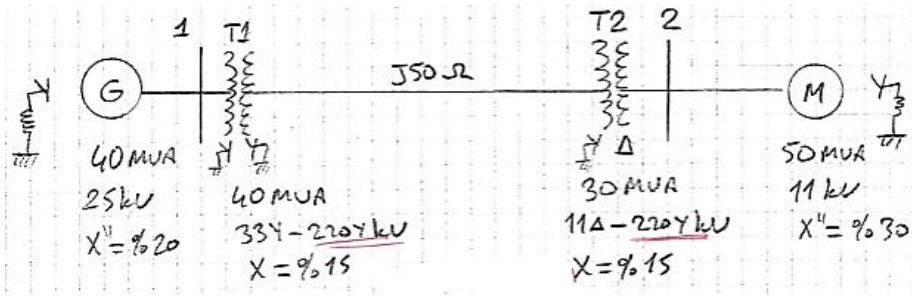 1 T1 T2 2
G J50Ω M
40MVA
25kV
X"=%20
40MVA
33Y-220Y kV
X=%15
Δ
30MVA
11Δ-220Y kV
X=%15
50MVA
11kV
X"=%30